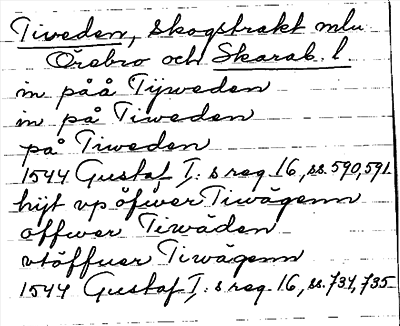 Tiveden, skogstrakt mlu
Örebro och Skarab. l
in påå Tijweden
in på Tiweden
på Tiweden
1544 Gustaf I:s reg. 16, ss. 590, 591
hijt vp öfwer Tiwägenn
offwer Tiwäden
vtöffuer Tiwägenn
1544 Gustaf I:s reg. 16, ss. 734, 735